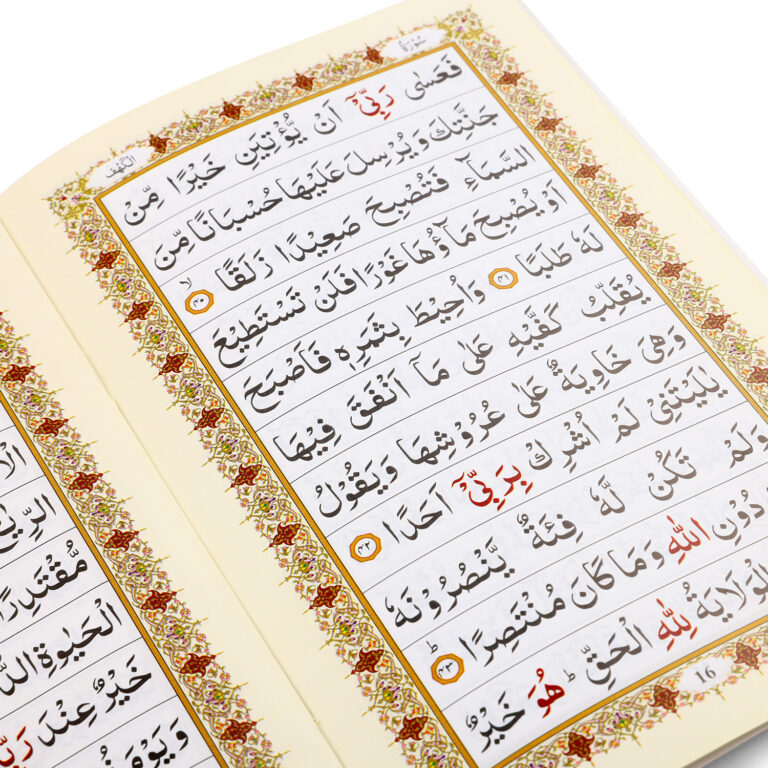 سُوْرَةُ
الْكَهْف
فَعَسٰى رَبِّيْٓ اَنْ يُّؤْتِيَنِ خَيْرًا مِّنْ
جَنَّتِكَ وَيُرْسِلَ عَلَيْهَا حُسْبَانًا مِّنَ
السَّمَآءِ فَتُصْبِحَ صَعِيْدًا زَلَقًا ۙ ﴿٤٠﴾
اَوْ يُصْبِحَ مَآؤُهَا غَوْرًا فَلَنْ تَسْتَطِيْعَ
لَهٗ طَلَبًا ﴿٤١﴾ وَاُحِيْطَ بِثَمَرِهٖ فَاَصْبَحَ
يُقَلِّبُ كَفَّيْهِ عَلٰى مَآ اَنْفَقَ فِيْهَا
وَهِيَ خَاوِيَةٌ عَلٰى عُرُوْشِهَا وَيَقُوْلُ
يٰلَيْتَنِيْ لَمْ اُشْرِكْ بِرَبِّيْٓ اَحَدًا ﴿٤٢﴾
وَلَمْ تَكُنْ لَّهٗ فِئَةٌ يَّنْصُرُوْنَهٗ
دُوْنِ اللّٰهِ وَمَا كَانَ مُنْتَصِرًا ؕ ﴿٤٣﴾
الْوَلَايَةُ لِلّٰهِ الْحَقِّ ؕ هُوَ خَيْرٌ
16
الرِّيٰ
مُّقْتَدِرًا
الْحَيٰوةِ
خَيْرٌ عِنْدَ
وَيَوْمَ